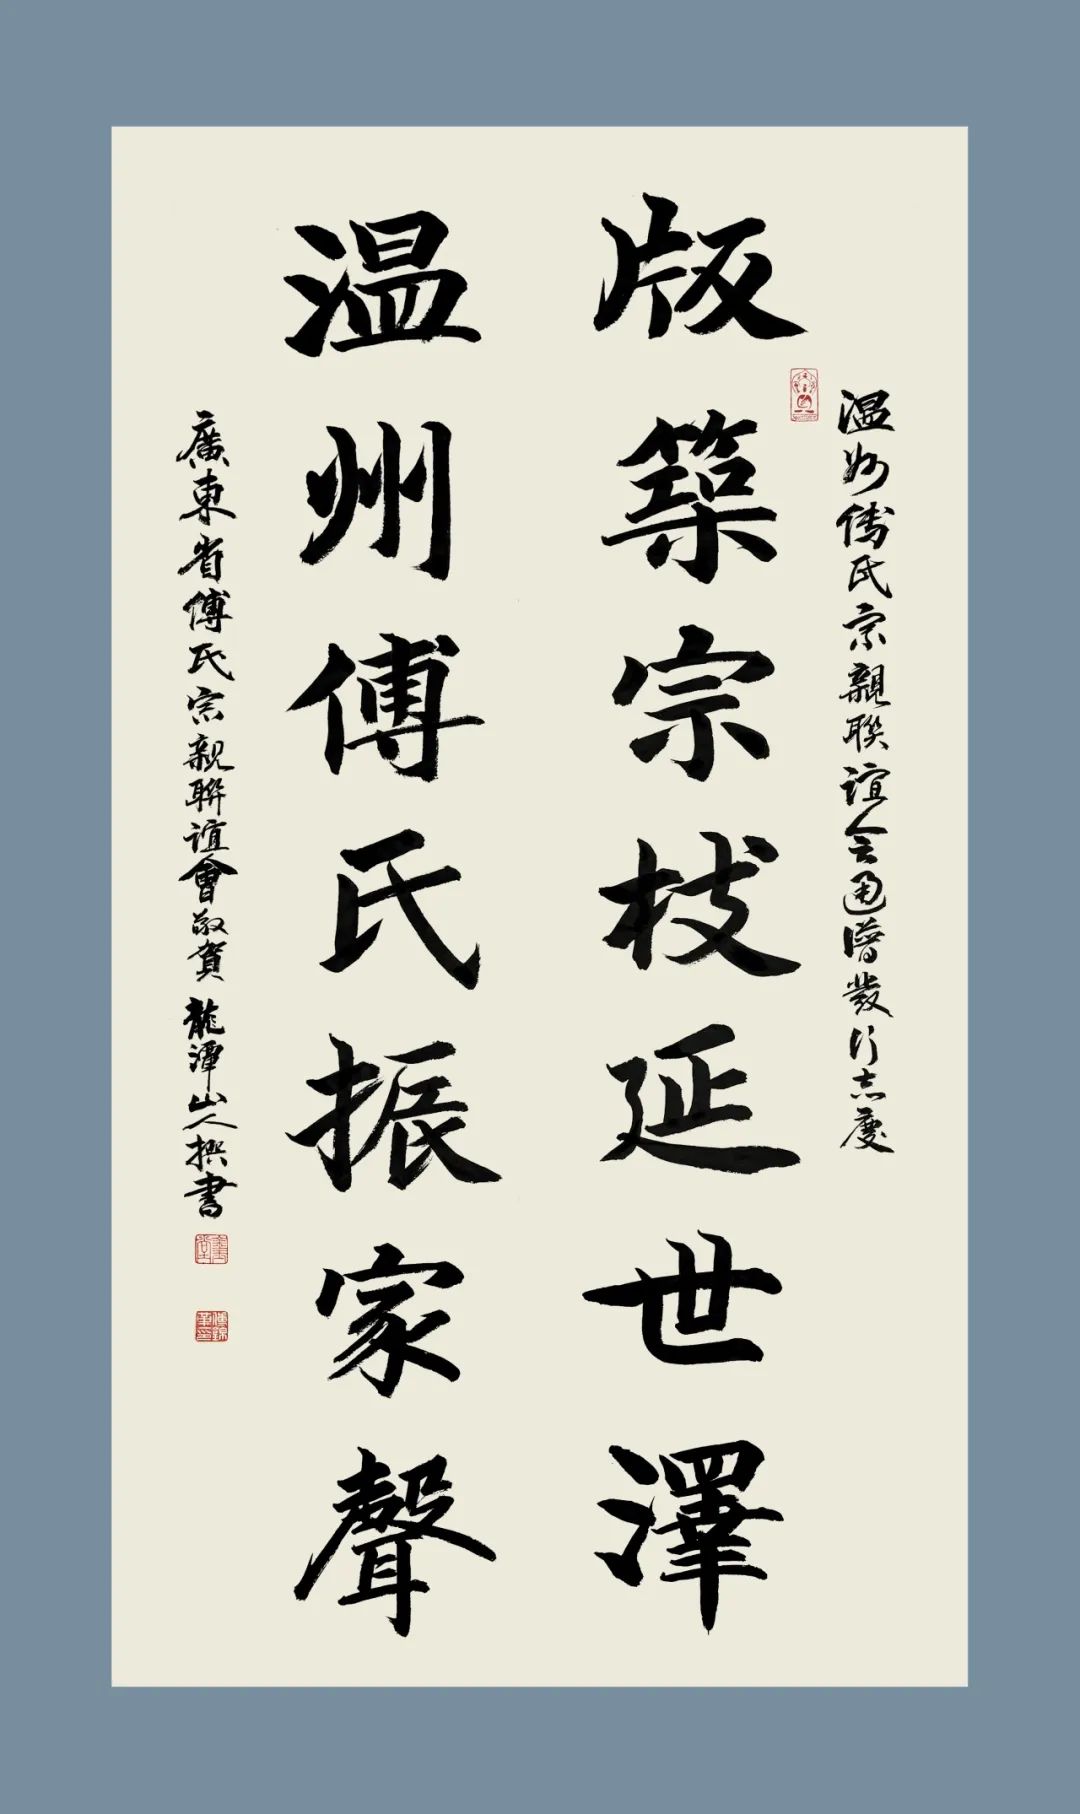 温州傅氏宗親聯誼会通譜發行志慶
版築宗枝延世澤
温州傅氏振家聲
廣東省傅氏宗親聯誼會敬賀 龍潭山人撰書